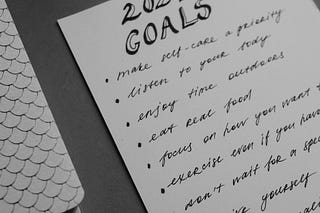 GOALS
• make self-care a priority
• listen to your body
• enjoy time outdoors
• eat real food
• focus on how you want
• exercise even if you have
don't wait for a
yourself